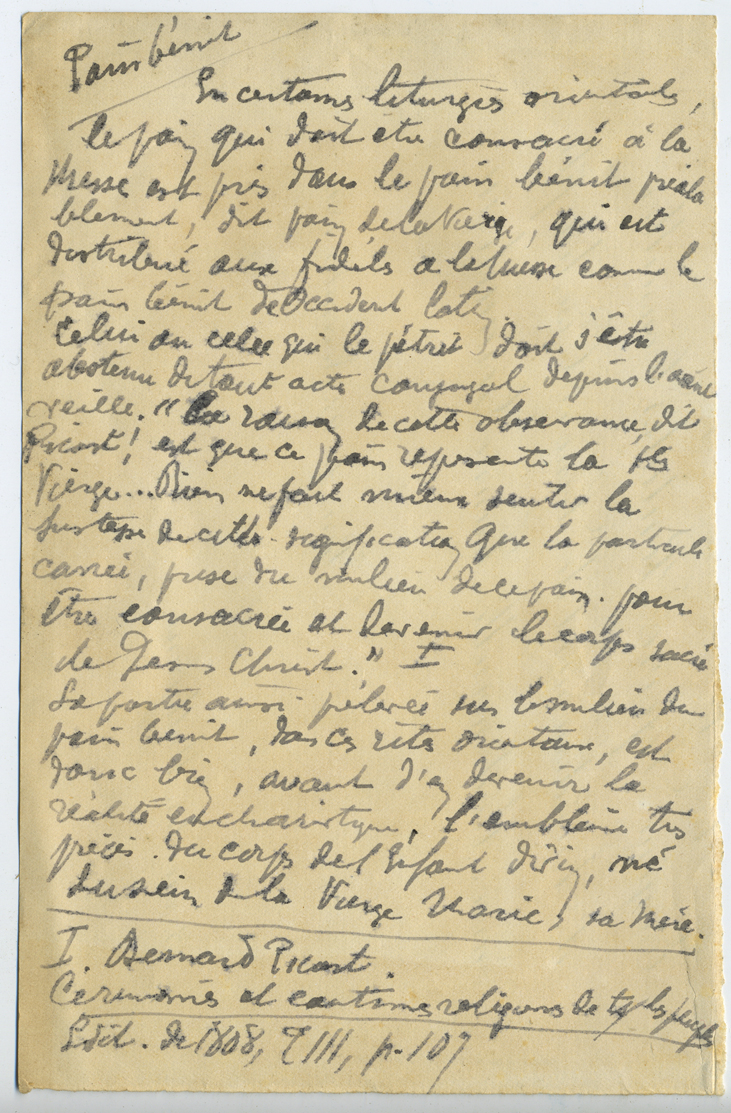 Pain bénit
En certaines liturgies orientales,
le pain qui doit être consacré à la
Messe est pris dans le pain bénit préala
blement, dit pain de la Vierge, qui est
distribué aux fidèles a la Messe comme le
pain bénit de Occident latin.
Celui ou celle qui le pétrit doit s'être
abstenu de tout acte conjugal depuis l'avant
veille. "La raison de cette observance, dit
Picart, est que ce pain represente la Ste
Vierge... Rien ne fait mieux sentir la
justesse de cette signification que la particule
carrée, prise du milieu de ce pain pour
être consacrée et devenir le corps sacré
de Jesus Christ." I
La partie ainsi prélevée sur le milieu du
pain benit, dans ces rites orientaux, est
donc bien, avant d'en devenir la
réalité eucharistique, l'emblème très
précis du corps de l'Enfant divin, né
du sein de la Vierge Marie, sa Mère.
I. Bernard Picart.
Cérémonies et coutumes religieuses de ts les peuples
Edit. de 1808, T III, p. 107